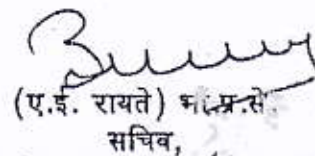 (ए.ई. रायते) भा.प्र.से.
सचिव,